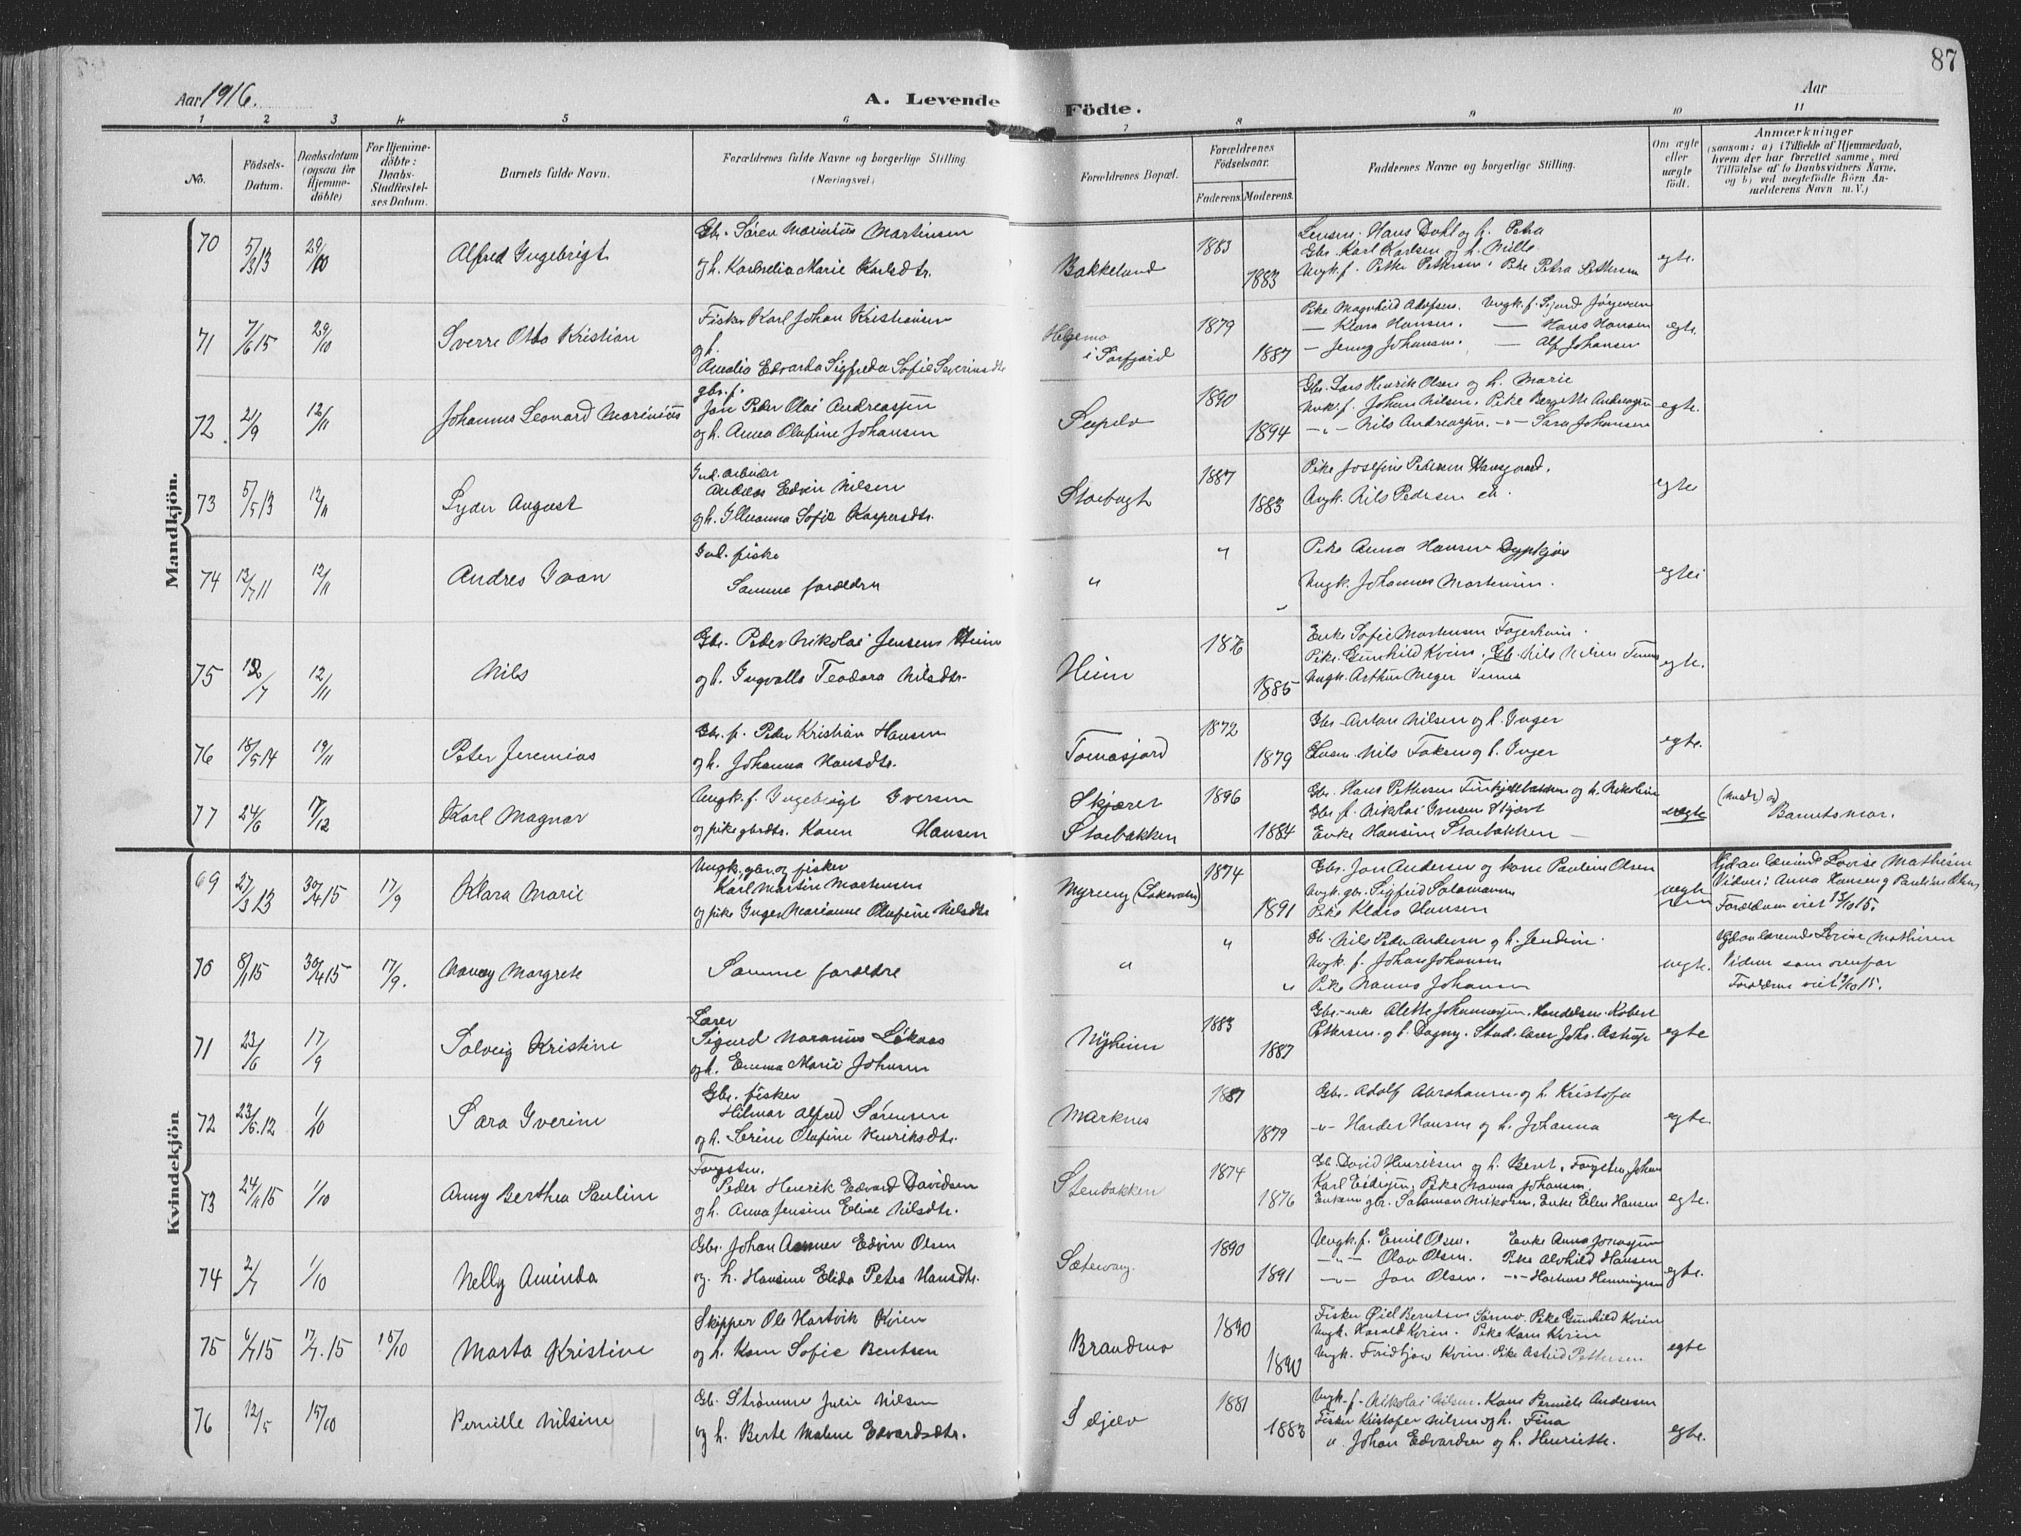 87
Aar 1916.
A. Levende Födte.
Aar
1 2 3 4 5 6 7 8 9 10 11
No.
Födsels-Datum.
Daabsdatum (ogsaa for Hjemmedöbte)
For Hjemmedöbte: Daabs-Stadfæstelses Datum.
Barnets fulde Navn.
Forældrenes fulde Navne og borgerlige Stilling (Næringsvei)
Forældrenes Bopæl.
Forældrenes Födselsaar.
Faderens. Moderens.
Faddernes Navne og borgerlige Stilling.
Om ægte eller uægte födt.
Anmærkninger
(saasom: a) i Tilfælde af Hjemmedaab, hvem der har forrettet samme, med Tilföielse af to Daabsvidners Navne, og b) ved uægtefödte Börn Anmelderens Navn m. V.)
Mandkjön.
70 5/3 13 29/10 Alfred Ingebrigt
Gbr. Sören Marinius Martinsen
og h. Karnelia Marie Karlsdtr.
Bakkeland 1883 1883
Hans Dahl og h. Petra
Gbr. Karl Karlsen og h.
Ungk. f. Petter Pettersen. Pike Petra Pettersen
egte.
71 7/6 15 29/10 Sverre Otto Kristian
Fisker Karl Johan Kristiansen
og h.
Amalia Edvarda Sigfreda Sofie Severinsdtr
Helgemo
i Sörfjord 1879 1887
Pike Magnhild Adolfsen. Ungk. f. Sigurd Jörgensen
— Klara Hansen. — Hans Hansen
— Jenny Johansen. — Alf Johansen
egte.
72. 21/9 12/11 Johannes Leonard Marinius
gbr. f.
Jon Peder Olai Andreassen
og h. Anna Olufine Johansen
1890 1894
Gbr. Lars Henrik Olsen og h. Marie
Ungk. f. Johan Nilsen. Pike Bergette Andreassen
-"- Nils Andreassen. -"- Sara Johansen
egte.
73 5/5 13 12/11 Lyder August
Ind. arbeider
Andreas Edvin Nilsen
og h. Sofie Kaspersdtr.
Storbugt 1887 1883
Pike Josefine Pedersen
Ungk. Nils Pedersen
egte
74 12/7 11 12/11 Andres Ivan
Ind. fisker
Samme forældre
" " "
Pike Anna Hansen
Ungk. Johannes Mortensen.
egte
75 12/7 12/11 Nils
Gbr. Peder Nikolai Jensen Heim
og h. Ingvalla Teodora Nilsdtr.
Heim 1876 1885
Enke Sofie Mortensen Fagerheim.
Pike Gunhild Kvien. Gb. Nils Nilsen
Ungk. Arthur Meyer
egte.
76 18/5 14 19/11 Peter Jeremias
Gbr. f. Peder Kristian Hansen
og h. Johanna Hansdtr.
Tomasjord 1872 1879
Gbr. Anton Nilsen og h. Inger
Nils og h. Inger
egte.
77 24/6 17/12 Karl Magnar
Ungk. f. Ingebrigt Iversen
og pike gbrdtr. Karen Hansen
Skjæret
Storbakken 1896 1884
Gbr. Hans Pettersen og h. Nikoline
Gbr. f. Nikolai
Enke Hansine Storbakken —
uægte
Barnets mor.
Kvindekjön
69 27/3 13 30/4 15 17/9 Klara Marie
Ungk. gbr. og fisker
Karl Martin Mortensen
og pike Inger Marianne Olufine Nilsdtr
Myreng 1874 1891
Gbr. Jon Andersen og kone Pauline Olsen
Ungk. gbr. Sigfrid Salamonsen
Pike Klara Hansen
uegte
Lovise Mathisen
Vidner: Anna Hansen og Pauline Olsen
Forældrene viet 15.
70 8/1 15 30/4 15 17/9. Nancy Margrete
Samme forældre
" " "
Gb. Nils Peder Andersen og h. Jendine.
Ungk. f. Johan Johansen
Pike Nanna Johansen
uegte.
Lovise Mathisen
Vidner som ovenfor
Forældrene viet 15.
71 23/6 17/9 Solveig Kristine
Lærer
Sigurd Løkaas
og h. Emma Marie Johansen
Nyheim 1883 1887
Gbr.-enke Alette Johannessen. Handelsm. Robert
Pettersen og h. Dagny. Stud. lærer Johs. Astrup
egte
72 23/6. 12 1/10 Sara Iverine
Gbr. fisker
Hilmar Alfred Sørensen
og h. Serine Olufine Henriksdtr.
Marknes 1887 1879
Gbr. Adolf Abrahamsen og h. Kristofa
-"- Hansen og h. Johanna
egte.
73 24/11 15 1/10 Anny Berthea Pauline
Peder Henrik Edvard Davidsen
og h. Anna Jensine Elise Nilsdtr.
Stenbakken 1874 1876
Gb. David Henriksen og h. Beret. Johan
Karl Pike Nanna Johansen.
Enkem. gbr. Salamon Nikolsen, Enke Elen Hansen
egte.
74 2/7 1/10 Nelly Aminda
Gbr. Johan Edvin Olsen
og. h. Hansine Elida Petra Hansdtr.
Sætervang 1890 1891
Ungk. f. Emil Olsen. Enke Anna Jonassen
-"- Olav Olsen. Pike Alvhild Hansen
-"- Jon Olsen. -"- Henningsen
egte.
75 6/7 15 17/7. 15 15/10 Marta Kristine
Skipper Ole Hartvik Kvien
og h. Karen Sofie Bentsen
Brandmo 1890 1890
Fisker Berntsen Pike Gunhild Kvien
Ungk. Harald Kvien. Pike Karen Kvien
Ungk. Fridtjov Kvien. Pike Astrid Pettersen
egte
76 12/5 15/10 Pernille Nilsine
Gb. Strømme Julin Nilsen
og h. Berte Malene Edvardsdtr.
1881 1883
Ungk. f. Nikolai Nilsen. Kone Pernille Andersen
Fisker Kristofer Nilsen og h. Fina
" Johan Edvardsen og h. Henriette.
egte.